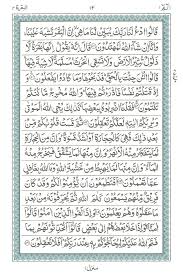 البقرة ٢
١٤
قَالُوا ادْعُ لَنَا رَبَّكَ يُبَيِّنْ لَنَا مَا هِيَ إِنَّ الْبَقَرَ تَشَابَهَ عَلَيْنَا
وَإِنَّا إِنْ شَاءَ اللَّهُ لَمُهْتَدُونَ قَالَ إِنَّهُ يَقُولُ إِنَّهَا بَقَرَةٌ لَا
ذَلُولٌ تُثِيرُ الْأَرْضَ وَلَا تَسْقِي الْحَرْثَ مُسَلَّمَةٌ لَا شِيَةَ فِيهَا
قَالُوا الْآنَ جِئْتَ بِالْحَقِّ فَذَبَحُوهَا وَمَا كَادُوا يَفْعَلُونَ وَإِذْ
قَتَلْتُمْ نَفْسًا فَادَّارَأْتُمْ فِيهَا وَاللَّهُ مُخْرِجٌ مَا كُنْتُمْ
تَكْتُمُونَ فَقُلْنَا اضْرِبُوهُ بِبَعْضِهَا كَذَلِكَ يُحْيِي اللَّهُ
الْمَوْتَى وَيُرِيكُمْ آيَاتِهِ لَعَلَّكُمْ تَعْقِلُونَ ثُمَّ قَسَتْ قُلُوبُكُمْ مِنْ
بَعْدِ ذَلِكَ فَهِيَ كَالْحِجَارَةِ أَوْ أَشَدُّ قَسْوَةً وَإِنَّ مِنَ الْحِجَارَةِ
لَمَا يَتَفَجَّرُ مِنْهُ الْأَنْهَارُ وَإِنَّ مِنْهَا لَمَا يَشَّقَّقُ فَيَخْرُجُ مِنْهُ
الْمَاءُ وَإِنَّ مِنْهَا لَمَا يَهْبِطُ مِنْ خَشْيَةِ اللَّهِ وَمَا اللَّهُ بِغَافِلٍ
عَمَّا تَعْمَلُونَ أَفَتَطْمَعُونَ أَنْ يُؤْمِنُوا لَكُمْ وَقَدْ كَانَ
فَرِيقٌ مِنْهُمْ يَسْمَعُونَ كَلَامَ اللَّهِ ثُمَّ يُحَرِّفُونَهُ مِنْ بَعْدِ
مَا عَقَلُوهُ وَهُمْ يَعْلَمُونَ وَإِذَا لَقُوا الَّذِينَ آمَنُوا قَالُوا
آمَنَّا وَإِذَا خَلَا بَعْضُهُمْ إِلَى بَعْضٍ قَالُوا أَتُحَدِّثُونَهُمْ بِمَا
فَتَحَ اللَّهُ عَلَيْكُمْ لِيُحَاجُّوكُمْ بِهِ عِنْدَ رَبِّكُمْ أَفَلَا تَعْقِلُونَ